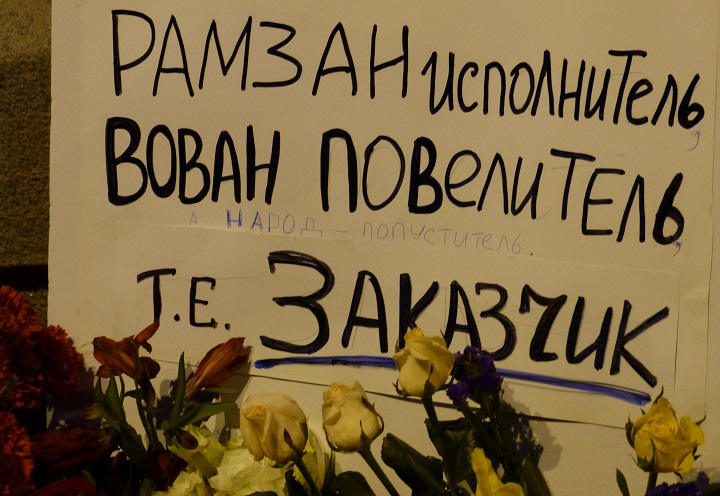 РАМЗАН исполнитель,
ВОВАН ПОВЕЛИТЕЛЬ,
А НАРОД – ПОПУСТИТЕЛЬ.
Т.Е. ЗАКАЗЧИК